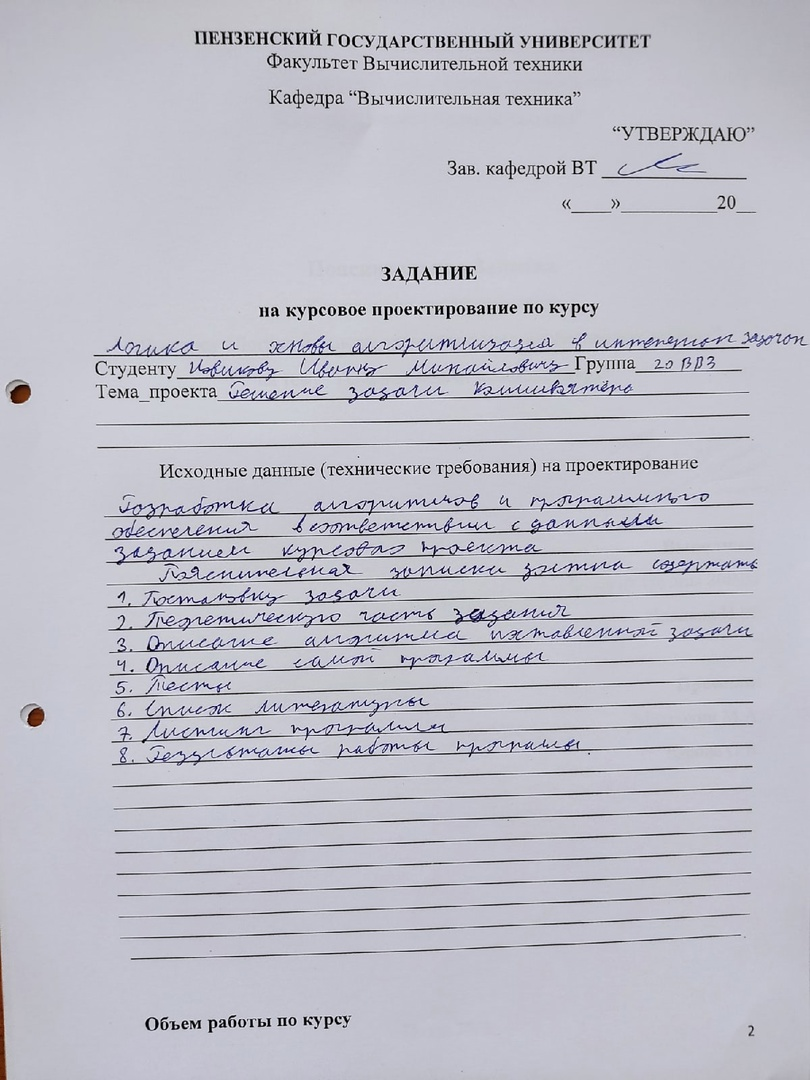 ПЕНЗЕНСКИЙ ГОСУДАРСТВЕННЫЙ УНИВЕРСИТЕТ
Факультет Вычислительной техники
Кафедра “Вычислительная техника”
“УТВЕРЖДАЮ”
Зав. кафедрой ВТ ______________
«____»__________20__
ЗАДАНИЕ
на курсовое проектирование по курсу
Логика и основы алгоритмизации в инженерных задачах
Студенту Новикову Ивану Михайловичу Группа 20ВВ3
Тема_проекта Решение задачи Коммивояжёра
Исходные данные (технические требования) на проектирование
Разработка алгоритмов и программного
обеспечения в соответствии с данным
заданием курсового проекта
Пояснительная записка должна содержать
1. Постановку задачи
2. Теоретическую часть задания
3. Описание алгоритма поставленной задачи
4. Описание самой программы
5. Тесты
6. Список литературы
7. Листинг программы
8. Результаты работы программы.
Объем работы по курсу
2